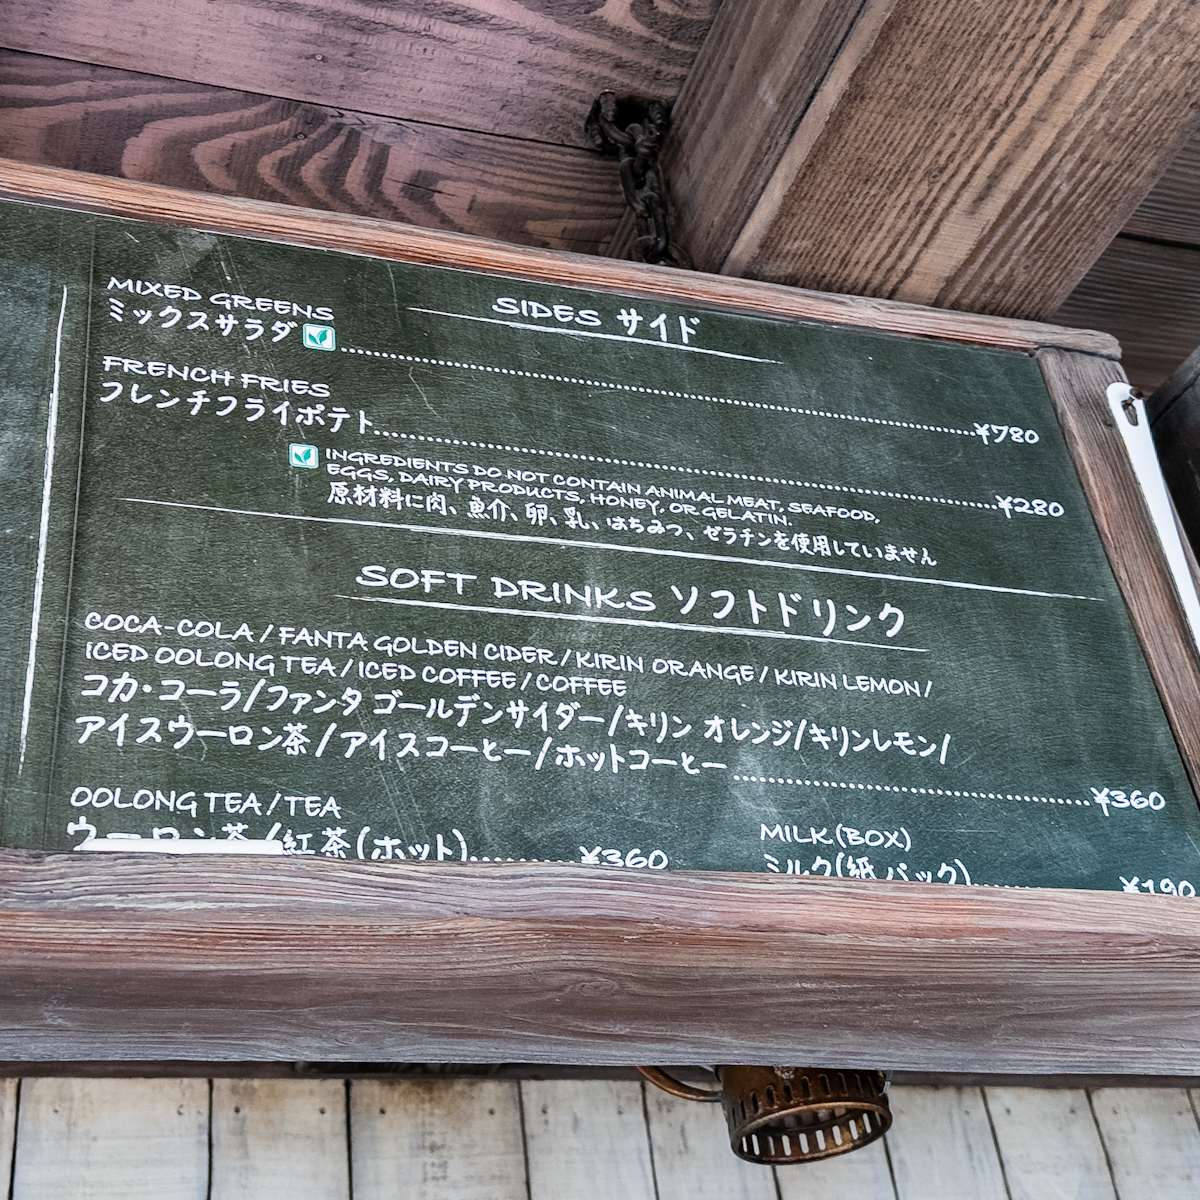 SIDES サイド
MIXED GREENS
ミックスサラダ ¥780
FRENCH FRIES
フレンチフライポテト ¥280
INGREDIENTS DO NOT CONTAIN ANIMAL MEAT, SEAFOOD,
EGGS, DAIRY PRODUCTS, HONEY, OR GELATIN.
原材料に肉、魚介、卵、乳、はちみつ、ゼラチンを使用していません
SOFT DRINKS ソフトドリンク
COCA-COLA / FANTA GOLDEN CIDER / KIRIN ORANGE / KIRIN LEMON /
ICED OOLONG TEA / ICED COFFEE / COFFEE
コカ・コーラ/ファンタ ゴールデンサイダー/キリン オレンジ/キリンレモン/
アイスウーロン茶/アイスコーヒー/ホットコーヒー ¥360
OOLONG TEA / TEA
ウーロン茶/紅茶(ホット) ¥360
MILK (BOX)
ミルク(紙パック) ¥190